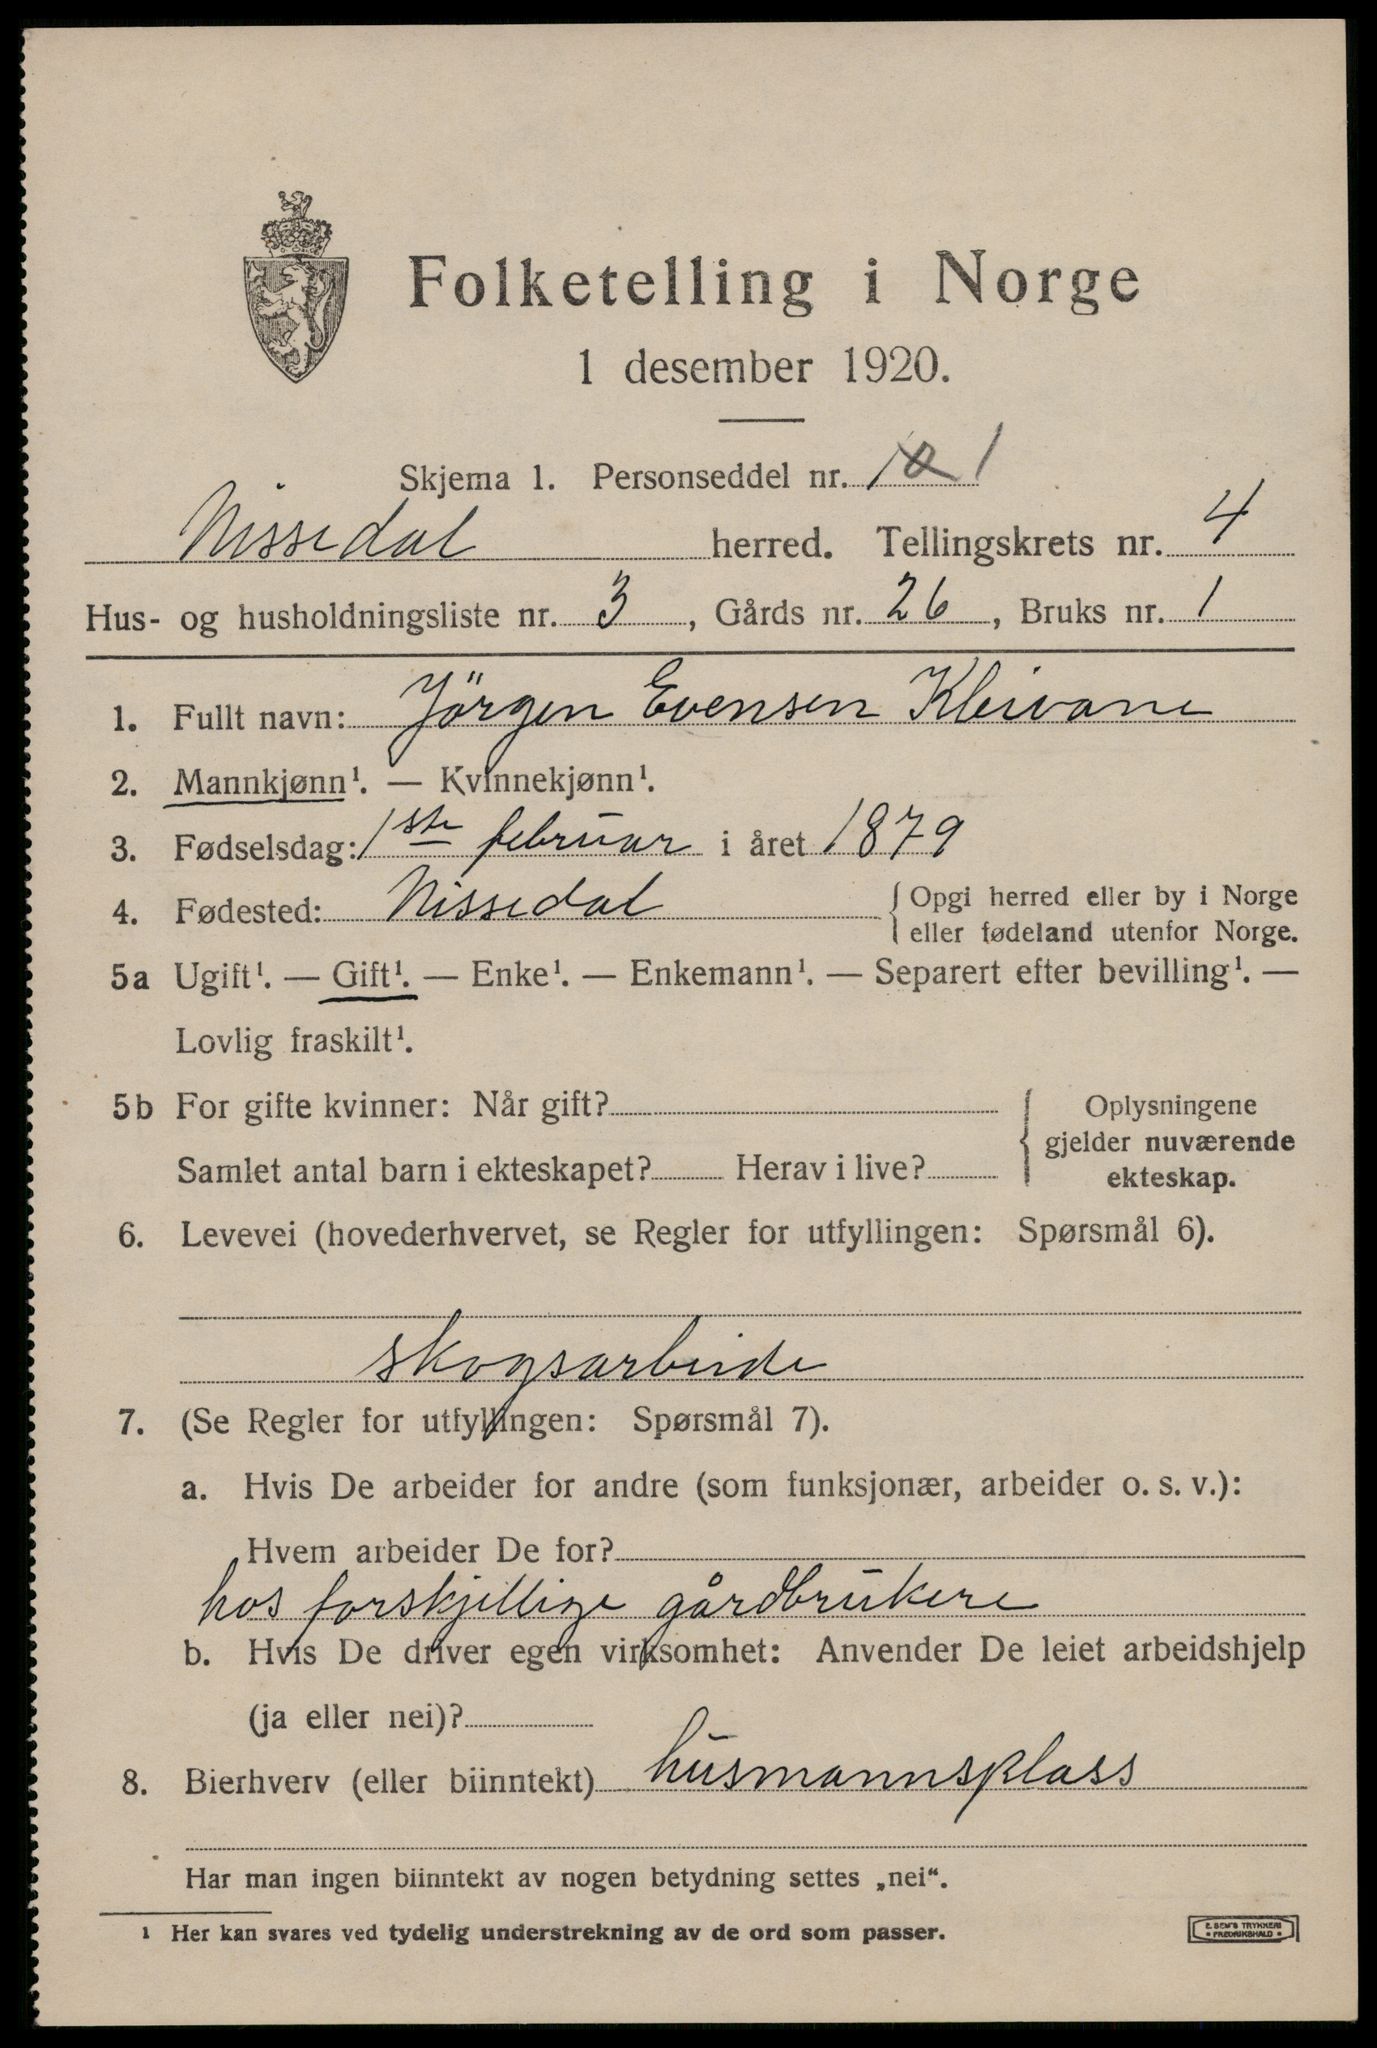 Folketelling i Norge
1 desember 1920.
Skjema 1. Personseddel nr. 1 1
Nissedal herred. Tellingskrets nr. 4
Hus- og husholdningsliste nr. 3, Gårds nr. 26, Bruks nr. 1
1. Fullt navn: Jörgen Evensen Kleivane
2. Mannkjønn¹. — Kvinnekjønn¹.
3. Fødselsdag: 1ste februar i året 1879
4. Fødested: Nissedal { Opgi herred eller by i Norge
eller fødeland utenfor Norge.
5a Ugift¹. — Gift¹. — Enke¹. — Enkemann¹. — Separert efter bevilling¹. —
Lovlig fraskilt¹.
5b For gifte kvinner: Når gift?
Samlet antal barn i ekteskapet? Herav i live?
{ Oplysningene
gjelder nuværende
ekteskap.
6. Levevei (hovederhvervet, se Regler for utfyllingen: Spørsmål 6).
skogsarbeide
7. (Se Regler for utfyllingen: Spørsmål 7).
a. Hvis De arbeider for andre (som funksjonær, arbeider o. s. v.):
Hvem arbeider De for?
hos forskjellige gårdbrukere
b. Hvis De driver egen virksomhet: Anvender De leiet arbeidshjelp
(ja eller nei)?
8. Bierhverv (eller biinntekt) husmannsplass
Har man ingen biinntekt av nogen betydning settes „nei“.
¹ Her kan svares ved tydelig understrekning av de ord som passer.
E. SEM'S TRYKKERI
* FREDRIKSHALD *